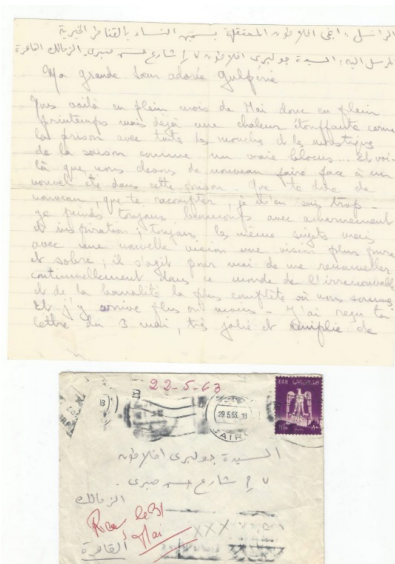 الراسل : انجى افلاطون المعتقلة بسجن النساء بالقناطر الخيرية
المرسل اليه : السيدة جولبرى افلاطون ٧ شارع حسن صبرى . الزمالك القاهرة
Ma grande soeur adorée Gulpérie
Nous voilà en plein mois de Mai donc en plein
printemps mais déjà une chaleur étouffante cerne
la prison avec toutes les mouches et les moustiques
de la saison comme un vrai blocus... Et voi-
là que nous devons de nouveau faire face à un
nouvel été dans cette prison. Que te dire de
nouveau, que te raconter, je n'en sais trop -
Je peins toujours beaucoup avec acharnement
et inspiration ; toujours les mêmes sujets mais
avec une nouvelle vision une vision plus pure
et sobre ; il s'agit pour moi de me renouveler
continuellement dans le monde de l'irrenouvelable
et de la banalité la plus complète où nous sommes
Et j'y arrive plus ou moins - J'ai reçu ta
lettre du 3 mai, très jolie et remplie de
22-5-63
CAIRO
السيدة جولبرى افلاطون
٧ شارع حسن صبرى .
الزمالك
القاهرة